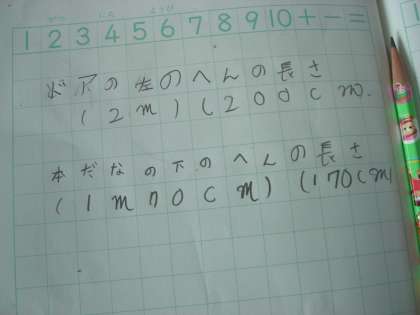 1 2 3 4 5 6 7 8 9 10 + − =
ドアの左のへんの長さ
(2m)(200cm)
本だなの下のへんの長さ
(1m70cm)(170cm)